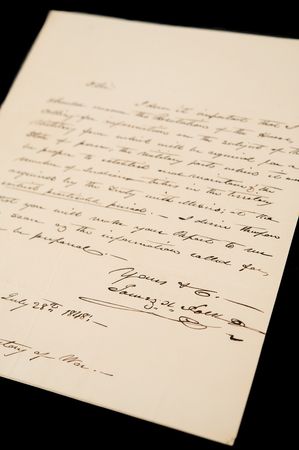 Sir: I deem it important that I
should answer the Resolutions of the House
calling for information on the subject of the
Military force which will be required for a
State of peace, the military posts which it
be proper to establish and maintain, the
number of Indian tribes in the territory
acquired by the treaty with Mexico, at the
earliest practicable period. — I desire therefore
that you will make your Report to me
as soon as the information called for,
be prepared. —
Yours &C. —
James K Polk
July 28th 1848. —
tary of War. —